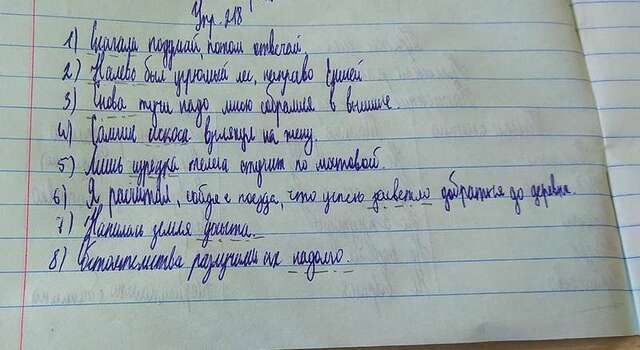 Упр. 218
1) Сначала подумай, потом отвечай.
2) Налево был угрюмый лес, направо Енисей
3) Снова тучи надо мною собралися в вышине.
4) Самгин искоса взглянул на жену.
5) Лишь изредка телега стучит по мостовой.
6) Я, рассчитал, сойдя с поезда, что успею засветло добраться до деревни.
7) Напилась земля досыта.
8) Обстоятельства разлучили их надолго.